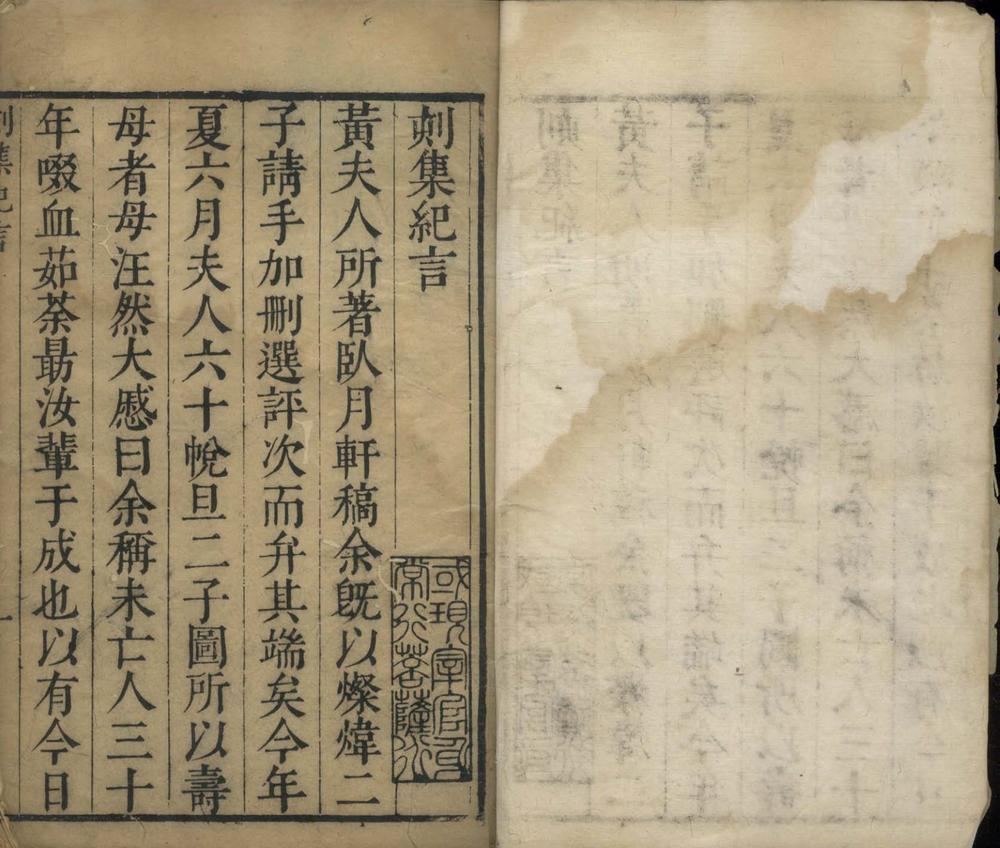 刻集紀言
黃夫人所著臥月軒稿余既以燦煒二
子請手加刪選評次而弁其端矣今年
夏六月夫人六十帨旦二子圖所以壽
母者母汪然大慼曰余稱未亡人三十
年啜血茹荼勗汝輩于成也以有今日
刻集紀言
一
或現宰官身
常行菩薩心